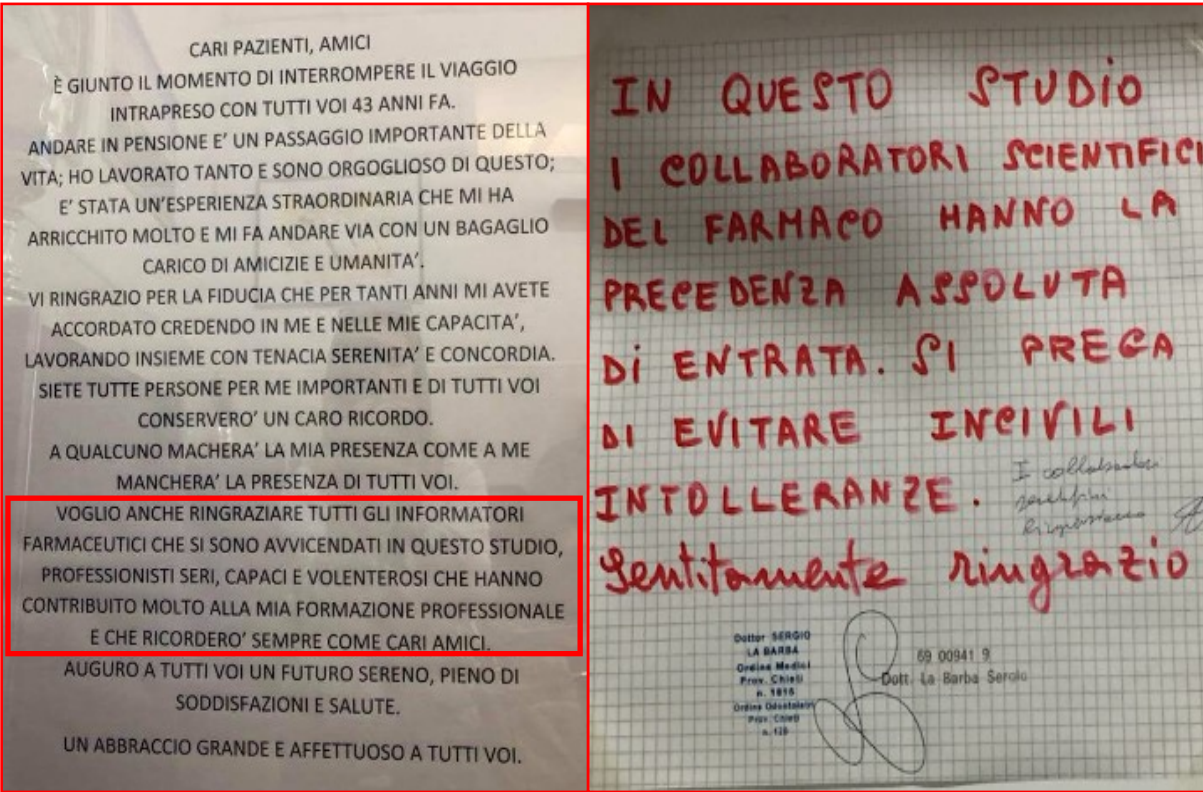 CARI PAZIENTI, AMICI
È GIUNTO IL MOMENTO DI INTERROMPERE IL VIAGGIO
INTRAPRESO CON TUTTI VOI 43 ANNI FA.
ANDARE IN PENSIONE E' UN PASSAGGIO IMPORTANTE DELLA
VITA; HO LAVORATO TANTO E SONO ORGOGLIOSO DI QUESTO;
E' STATA UN'ESPERIENZA STRAORDINARIA CHE MI HA
ARRICCHITO MOLTO E MI FA ANDARE VIA CON UN BAGAGLIO
CARICO DI AMICIZIE E UMANITA'.
VI RINGRAZIO PER LA FIDUCIA CHE PER TANTI ANNI MI AVETE
ACCORDATO CREDENDO IN ME E NELLE MIE CAPACITA',
LAVORANDO INSIEME CON TENACIA SERENITA' E CONCORDIA.
SIETE TUTTE PERSONE PER ME IMPORTANTI E DI TUTTI VOI
CONSERVERO' UN CARO RICORDO.
A QUALCUNO MACHERA' LA MIA PRESENZA COME A ME
MANCHERA' LA PRESENZA DI TUTTI VOI.
VOGLIO ANCHE RINGRAZIARE TUTTI GLI INFORMATORI
FARMACEUTICI CHE SI SONO AVVICENDATI IN QUESTO STUDIO,
PROFESSIONISTI SERI, CAPACI E VOLENTEROSI CHE HANNO
CONTRIBUITO MOLTO ALLA MIA FORMAZIONE PROFESSIONALE
E CHE RICORDERO' SEMPRE COME CARI AMICI.
AUGURO A TUTTI VOI UN FUTURO SERENO, PIENO DI
SODDISFAZIONI E SALUTE.
UN ABBRACCIO GRANDE E AFFETTUOSO A TUTTI VOI.
IN QUESTO STUDIO
I COLLABORATORI SCIENTIFICI
DEL FARMACO HANNO LA
PRECEDENZA ASSOLUTA
DI ENTRATA. SI PREGA
DI EVITARE INCIVILI
INTOLLERANZE.
I collaboratori
scientifici
ringraziano
Sentitamente ringrazio
Dottor SERGIO
LA BARBA
Ordine Medici
Prov. Chieti
n. 1815
Ordine Odontoiatri
Prov. Chieti
n. 129
69 00941 9
Dott. La Barba Sergio